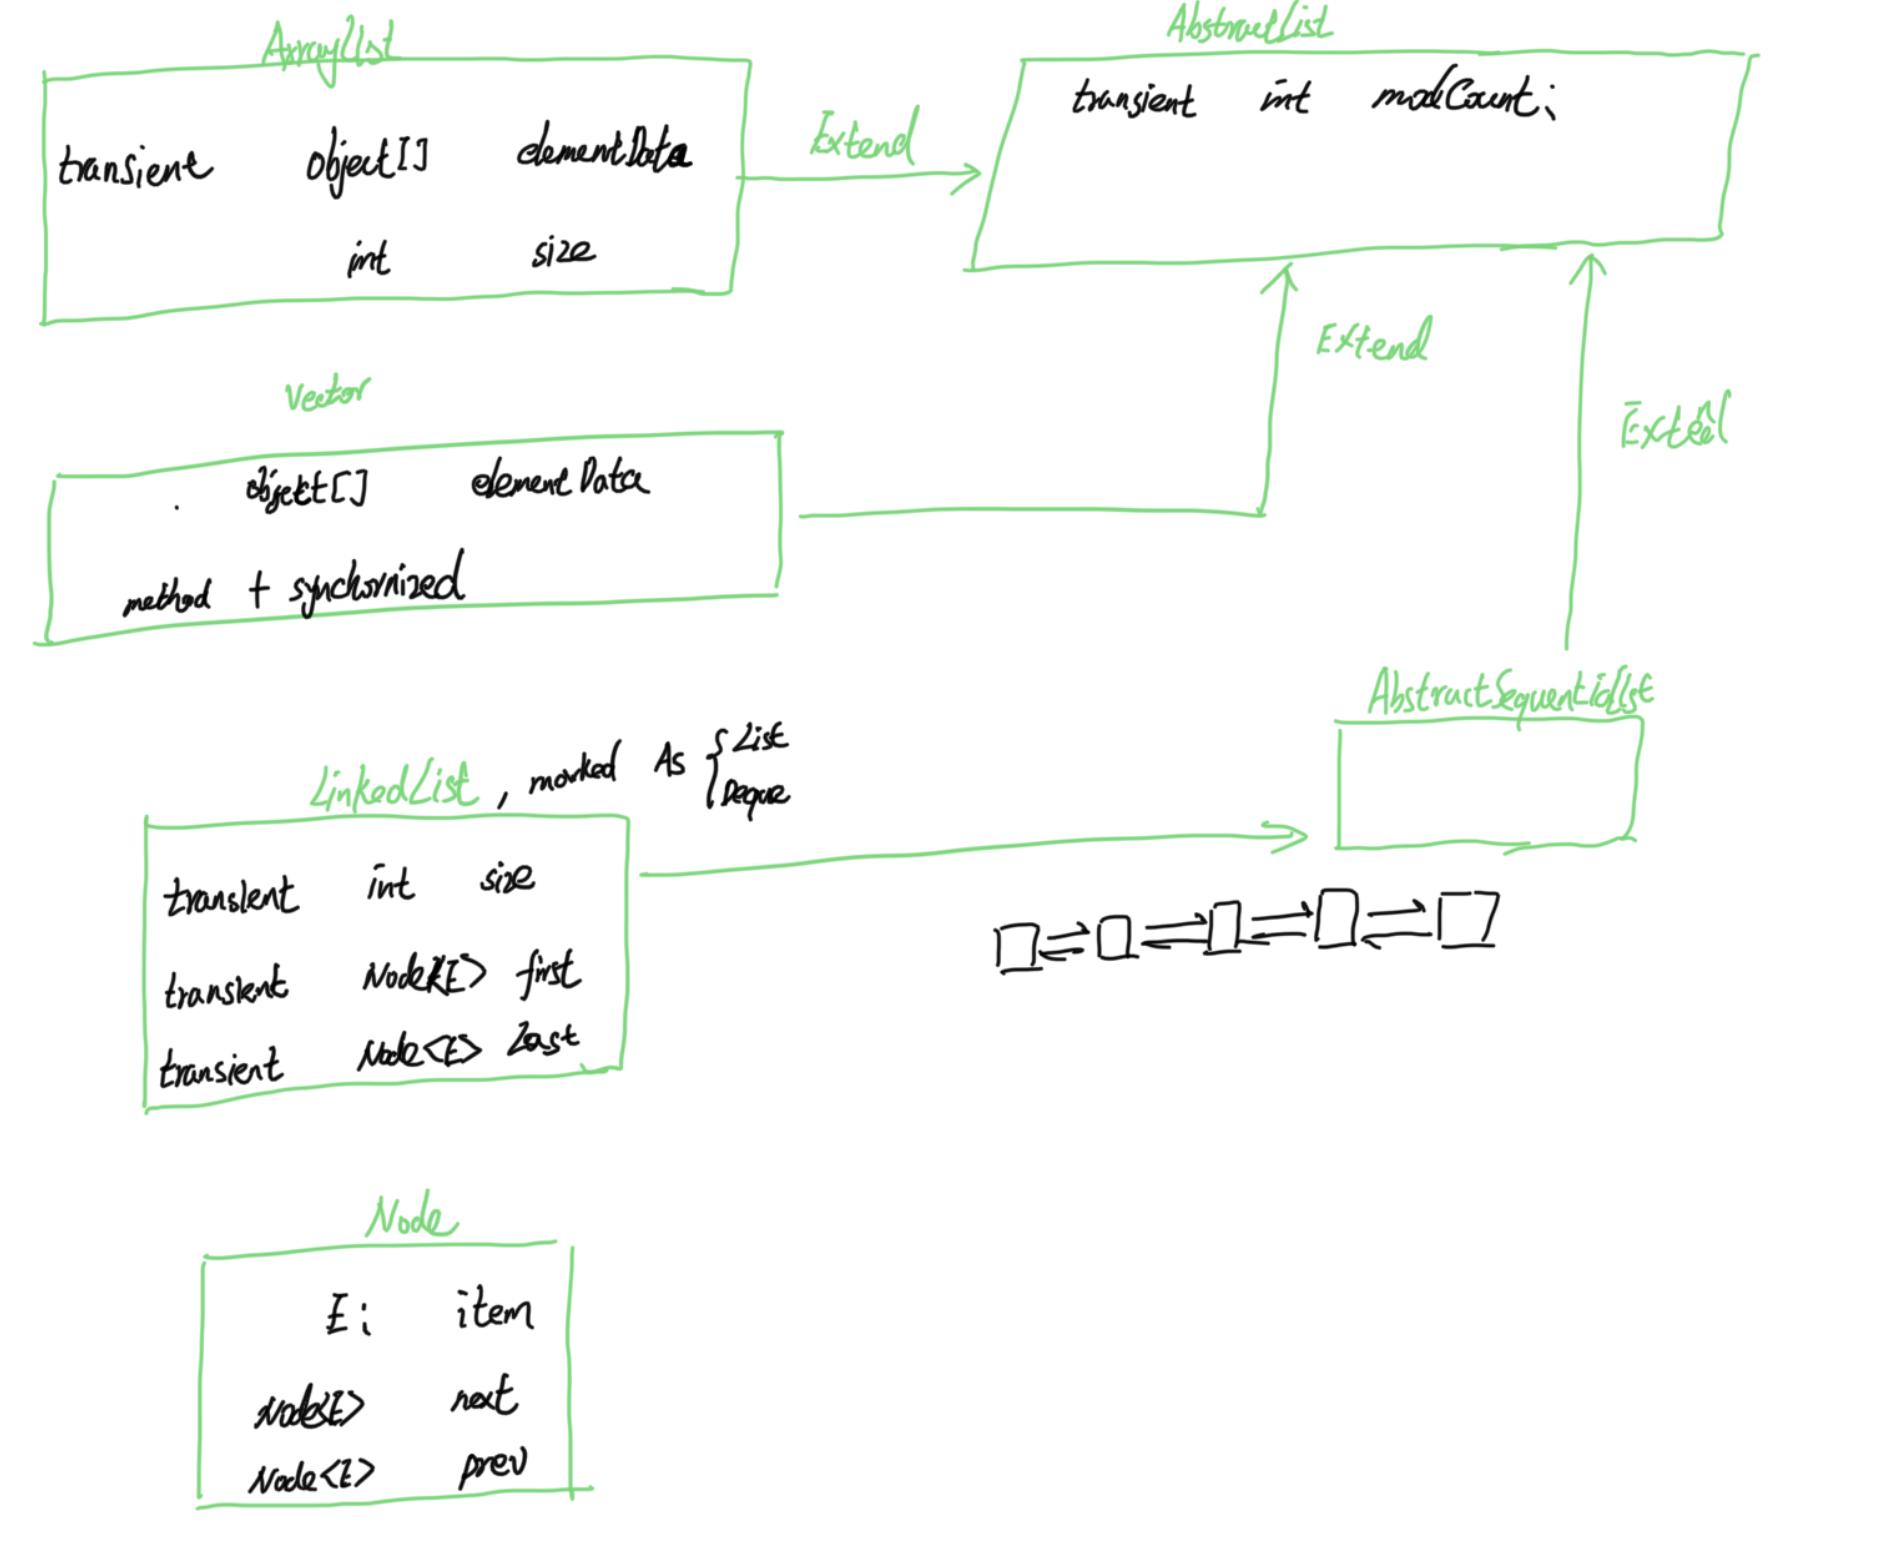 ArrayList
transient object[] elementData
int size
Extend
AbstractList
transient int modCount;
Extend
Extend
Vector
object[] elementData
method + synchornized
AbstractSequentialList
LinkedList, marked As { List
Deque
transient int size
transient Node<E> first
transient Node<E> Last
Node
E; item
Node<E> next
Node<E> prev